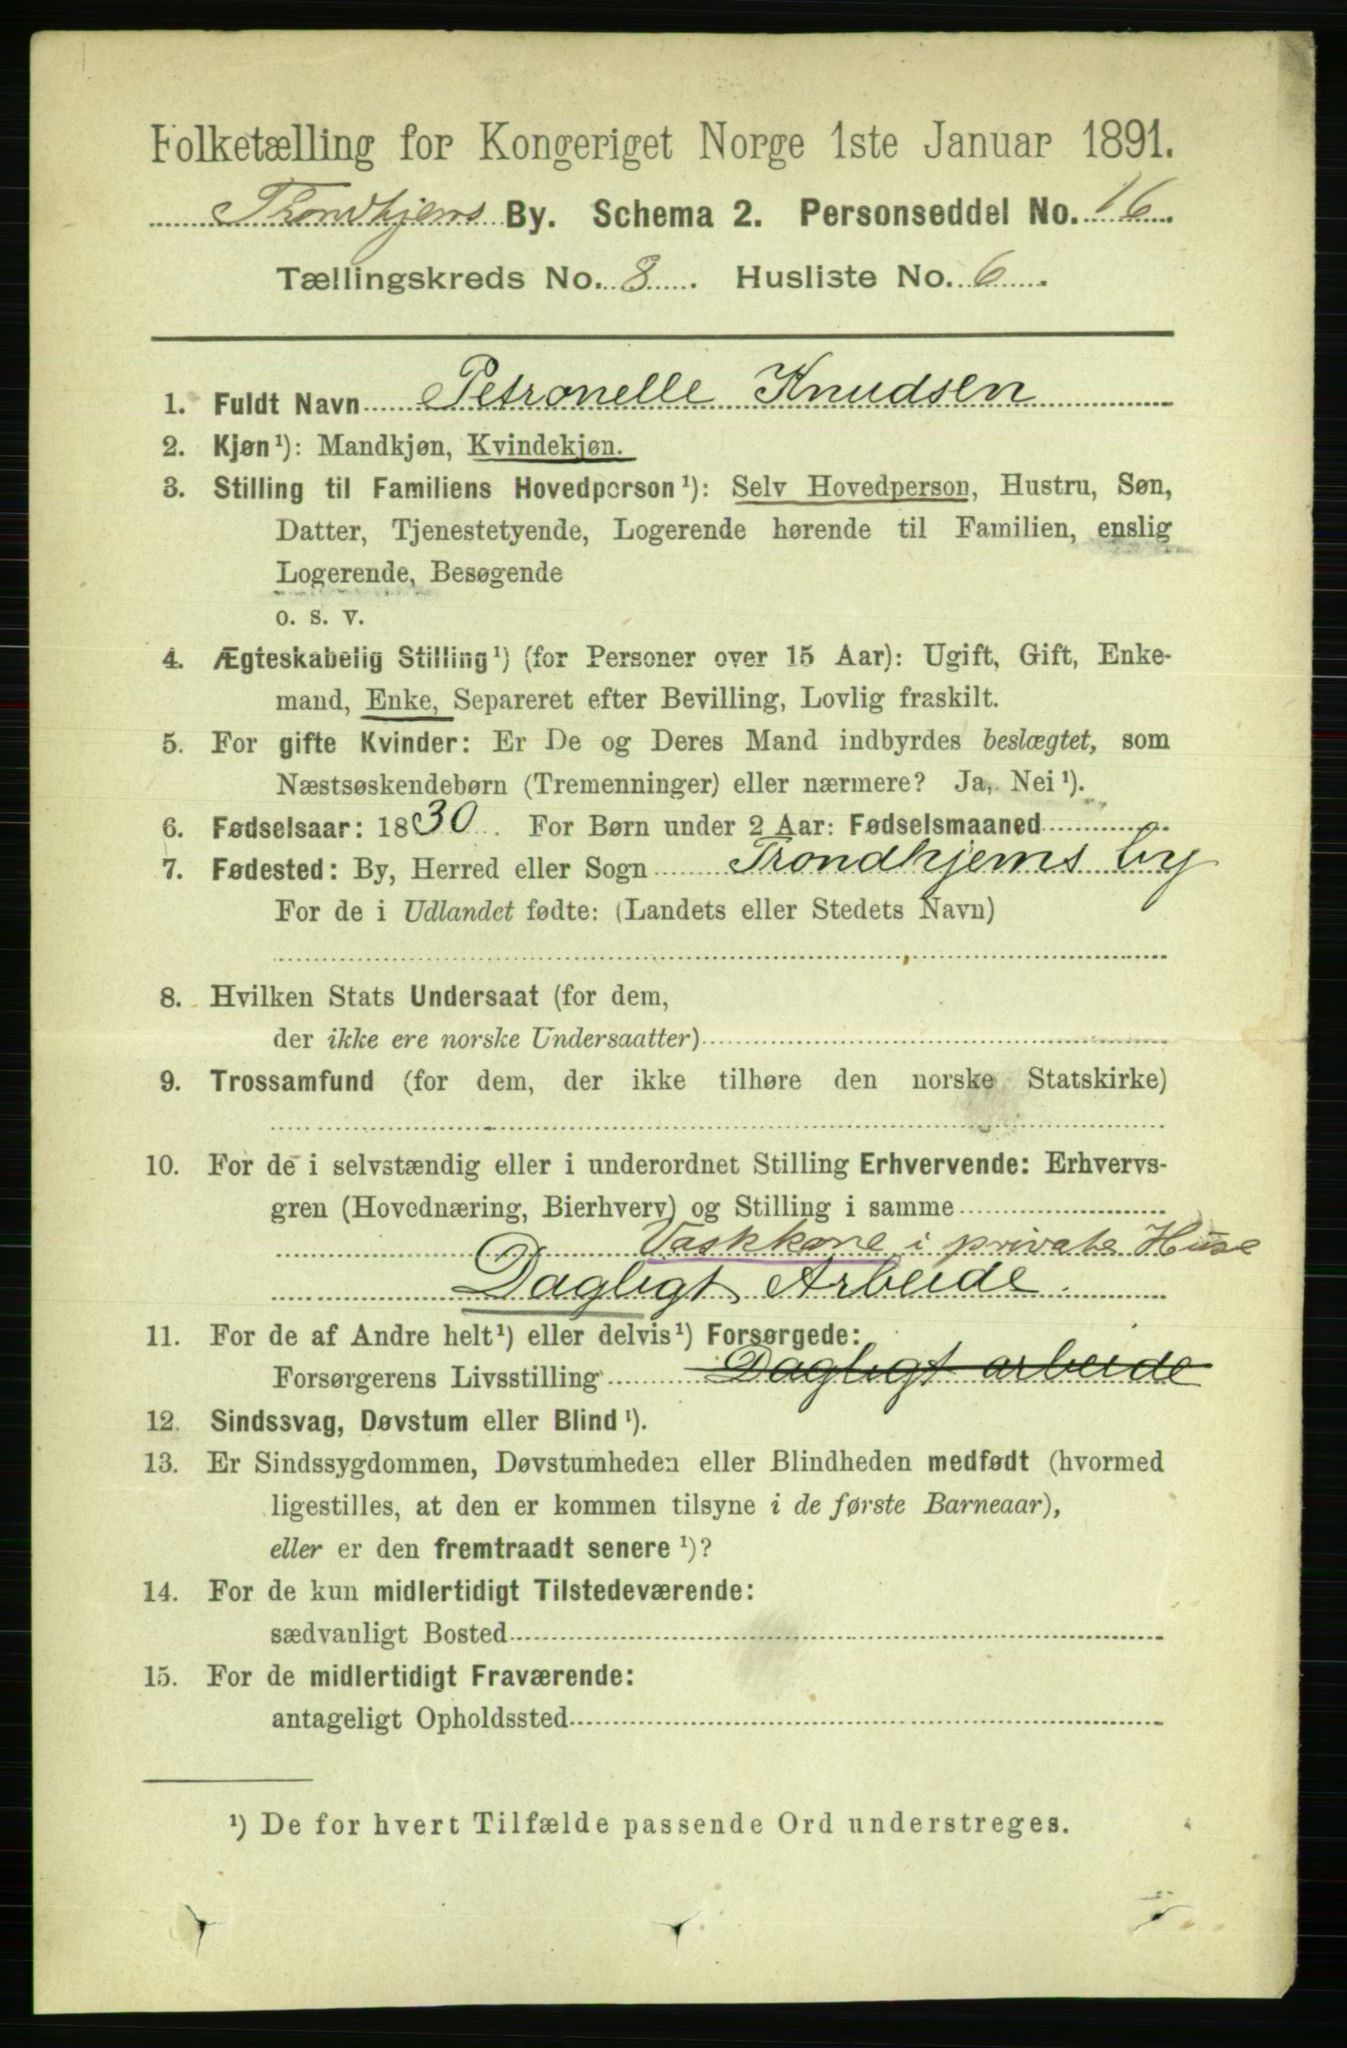 Folketælling for Kongeriget Norge 1ste Januar 1891.
Trondhjems By. Schema 2. Personseddel No. 16.
Tællingskreds No. 8. Husliste No. 6.
1. Fuldt Navn Petronelle Knudsen
2. Kjøn¹): Mandkjøn, Kvindekjøn.
3. Stilling til Familiens Hovedperson¹): Selv Hovedperson, Hustru, Søn,
Datter, Tjenestetyende, Logerende hørende til Familien, enslig
Logerende, Besøgende
o. s. v.
4. Ægteskabelig Stilling¹) (for Personer over 15 Aar): Ugift, Gift, Enke-
mand, Enke, Separeret efter Bevilling, Lovlig fraskilt.
5. For gifte Kvinder: Er De og Deres Mand indbyrdes beslægtet, som
Næstsøskendebørn (Tremenninger) eller nærmere? Ja, Nei¹).
6. Fødselsaar: 1830. For Børn under 2 Aar: Fødselsmaaned
7. Fødested: By, Herred eller Sogn Trondhjems by
For de i Udlandet fødte: (Landets eller Stedets Navn)
8. Hvilken Stats Undersaat (for dem,
der ikke ere norske Undersaatter)
9. Trossamfund (for dem, der ikke tilhøre den norske Statskirke)
10. For de i selvstændig eller i underordnet Stilling Erhvervende: Erhvervs-
gren (Hovednæring, Bierhverv) og Stilling i samme
Vaskkone i private Huse
Dagligt Arbeide.
11. For de af Andre helt¹) eller delvis¹) Forsørgede:
Forsørgerens Livsstilling Dagligt arbeide
12. Sindssvag, Døvstum eller Blind¹).
13. Er Sindssygdommen, Døvstumheden eller Blindheden medfødt (hvormed
ligestilles, at den er kommen tilsyne i de første Barneaar),
eller er den fremtraadt senere¹)?
14. For de kun midlertidigt Tilstedeværende:
sædvanligt Bosted
15. For de midlertidigt Fraværende:
antageligt Opholdssted
¹) De for hvert Tilfælde passende Ord understreges.